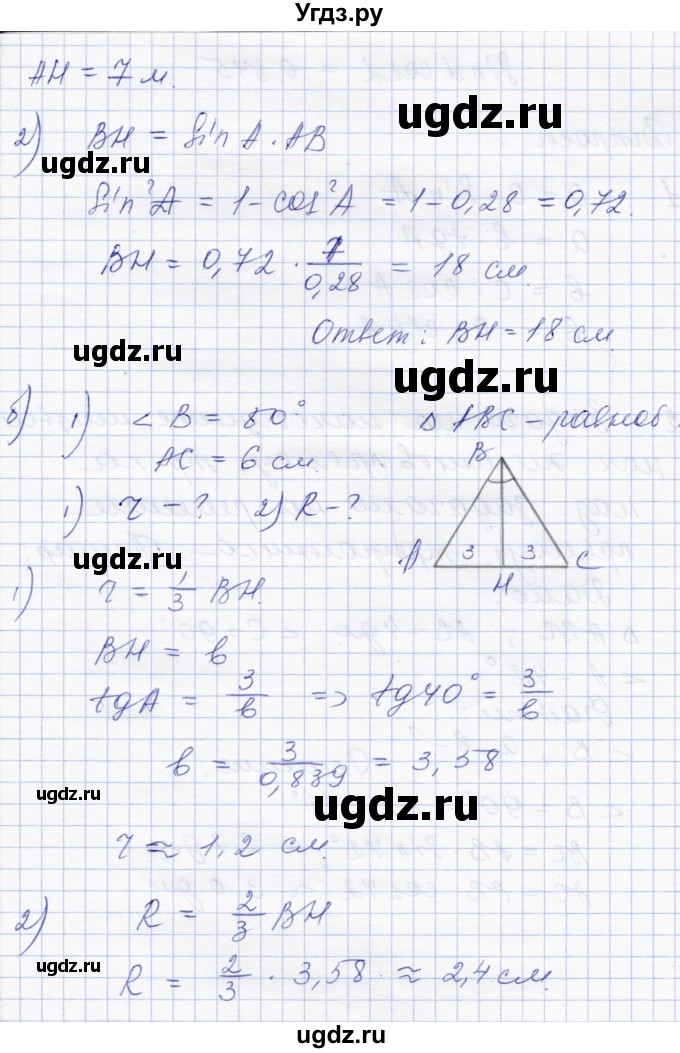 Угдз.ру
AH = 7 м.
ugdz.ru
2) BH = sin A · AB
ugdz.ru
sin²A = 1 - cos²A = 1 - 0,28 = 0,72.
BH = 0,72 · 7/0,28 = 18 см.
Ответ: BH = 18 см.
ugdz.ru
ugdz.ru
б) 1) ∠B = 80° Δ ABC - равноб.
AC = 6 см.
B
1) r - ? 2) R - ?
ugdz.ru
A 3 3 C
H
1) r = 1/3 BH.
BH = b
tg A = 3/b => tg 40° = 3/b
b = 3/0,839 = 3,58
ugdz.ru
ugdz.ru
r ≈ 1,2 см.
2) R = 2/3 BH
ugdz.ru
R = 2/3 · 3,58 ≈ 2,4 см.
ugdz.ru
ugdz.ru